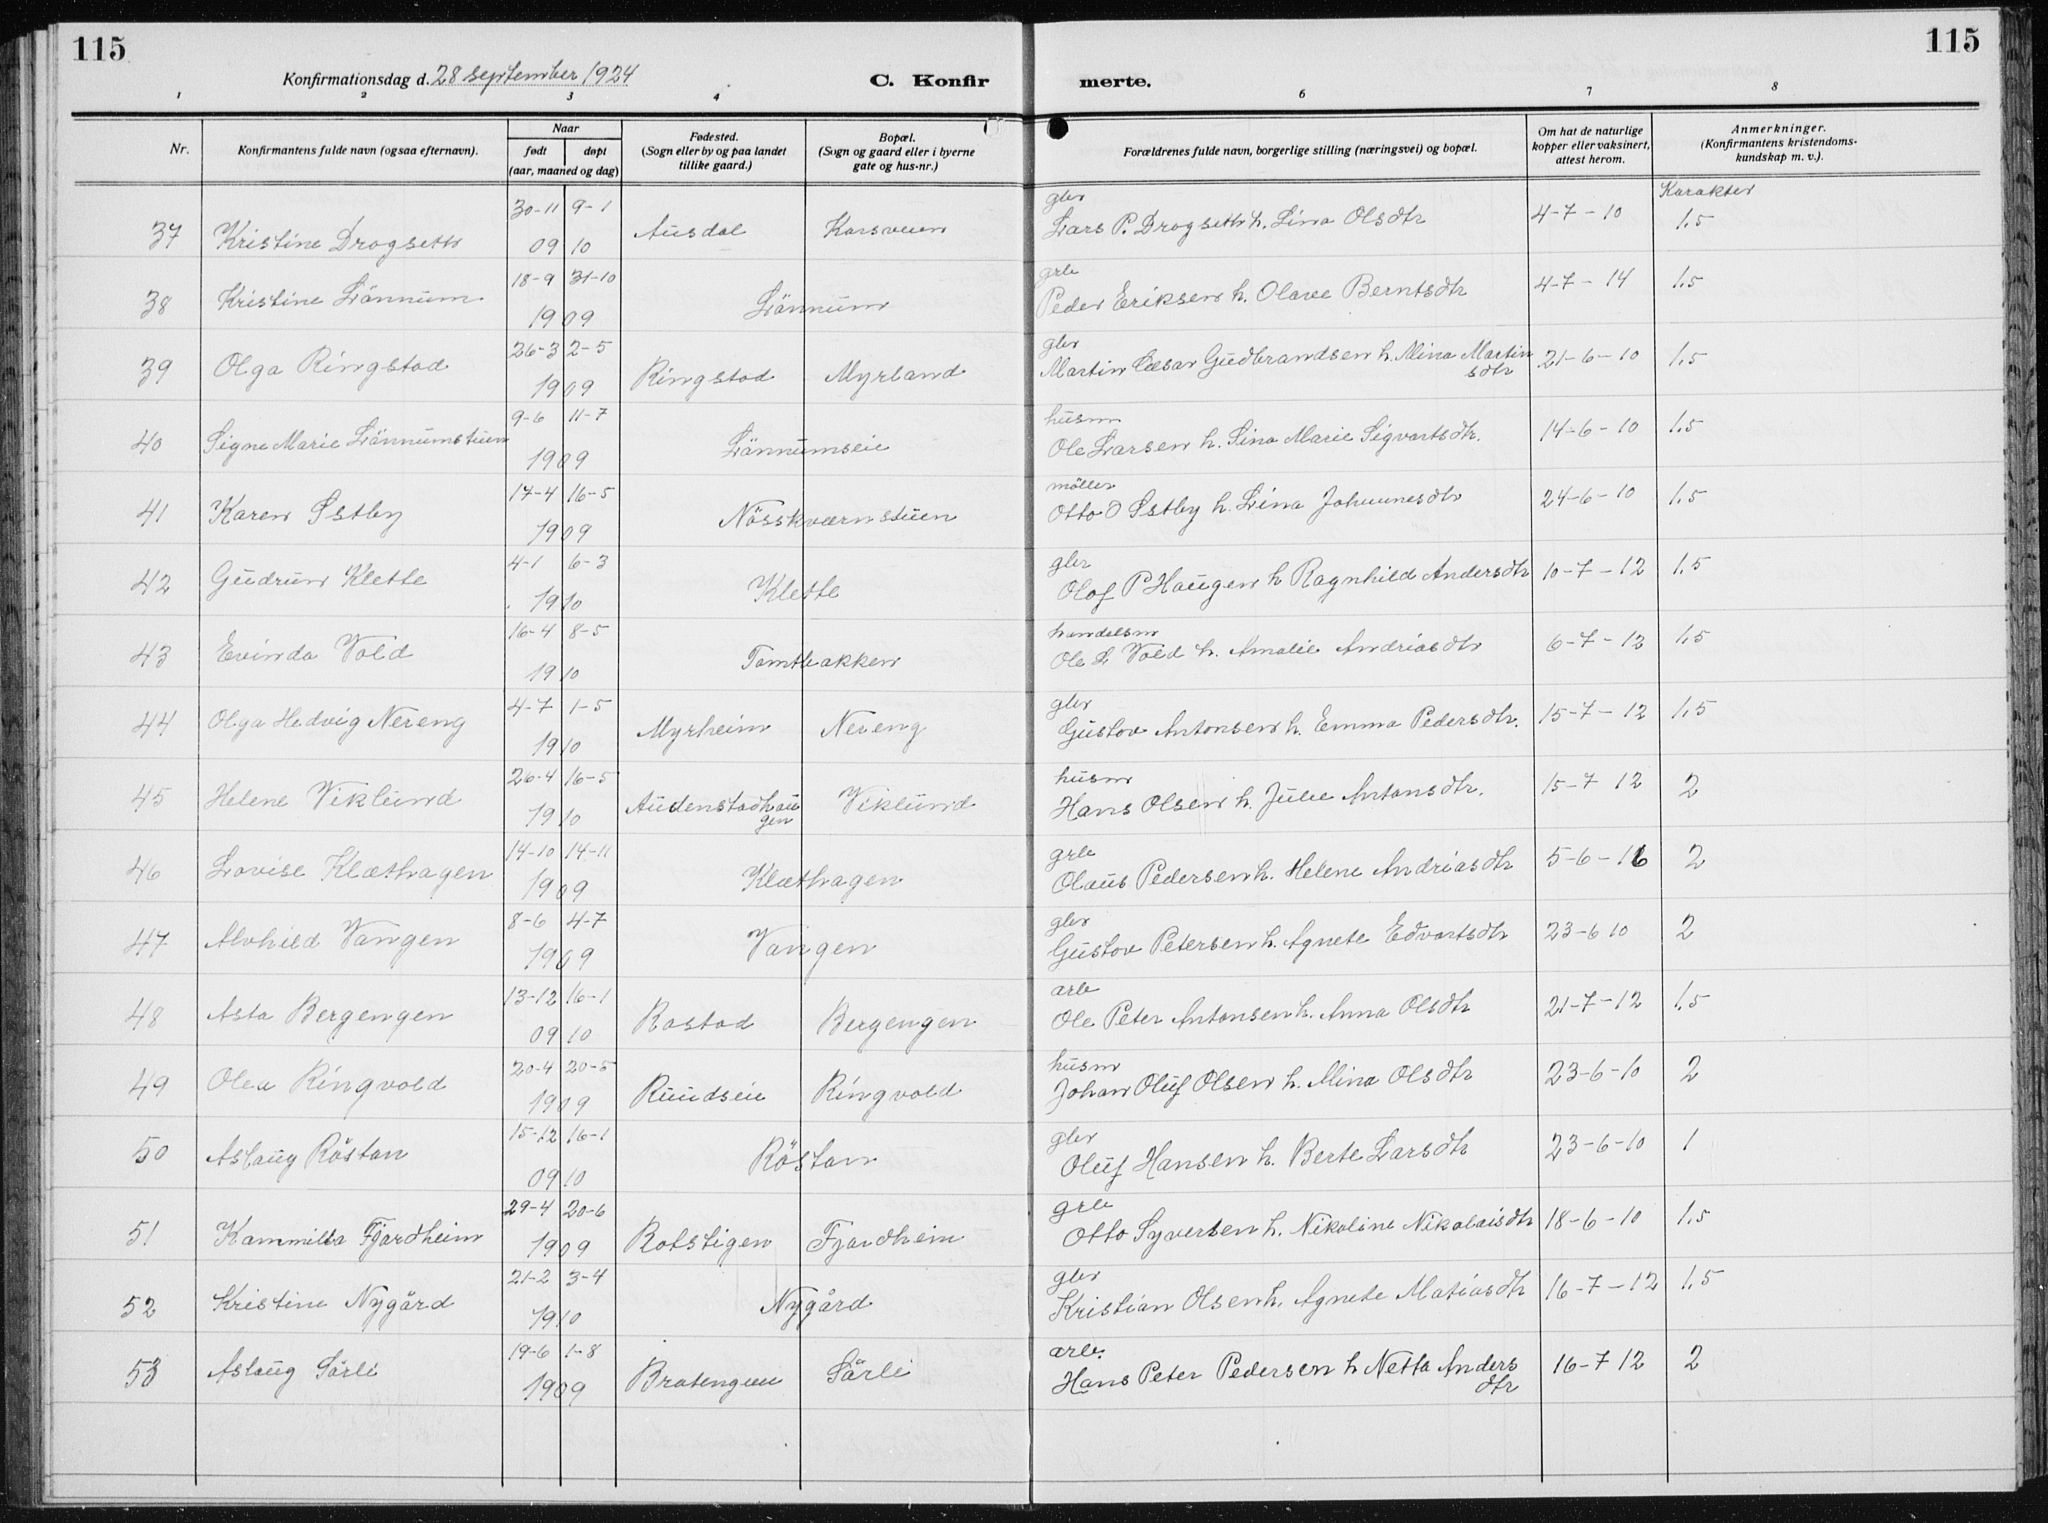 115
115
Konfirmationsdag d. 28 september 1924
C. Konfir
merte.
1 2 3 4 5 6 7 8
Nr.
Konfirmantens fulde navn (ogsaa efternavn).
Naar
født døpt
(aar, maaned og dag)
Fødested.
(Sogn eller by og paa landet
tillike gaard.)
Bopæl.
(Sogn og gaard eller i byerne
gate og hus-nr.)
Forældrenes fulde navn, borgerlige stilling (næringsvei) og bopæl.
Om hat de naturlige
kopper eller vaksinert,
attest herom.
Anmerkninger.
(Konfirmantens kristendoms-
kundskap m. v.).
Karakter
30-11 9-1 gbr
37 Kristine Drogseth 09 10 Ausdal Karsveen Lars P. Drogseth h. Lina Olsdtr 4-7-10 1,5
18-9 31-10 grbr
38 Kristine Lönnum 1909 Lönnum Peder Eriksen h. Olave Berntsdtr 4-7-14 1,5
26-3 2-5 gbr
39 Olga Ringstad 1909 Ringstad Myrland Martin Cæsar Gudbrandsen h. Mina Martin
sdtr 21-6-10 1,5
9-6 11-7 husm
40 Signe Marie Lönnumstuen 1909 Lönnumseie Ole Larsen h. Lina Marie Sigvartsdtr. 14-6-10 1,5
17-4 16-5 möller
41 Karen Østby 1909 Nösskværnstuen Otto O Østby h. Lina Johannesdtr 24-6-10 1,5
4-1 6-3 gbr
42 Gudrun Klette 1910 Klette Olof P Haugen h Ragnhild Andersdtr 10-7-12 1,5
16-4 8-5 handelsm
43 Evinda Vold 1910 Tomtbakken Ole L Vold h. Amalie Andriasdtr 6-7-12 1,5
4-7 1-5 gbr
44 Olga Hedvig Nereng 1910 Myrheim Nereng Gustav Antonsen h. Emma Pedersdtr. 15-7-12 1,5
26-4 16-5 husm
45 Helene Viklund 1910 Audenstadhau
gen Viklund Hans Olsen h. Julie Antonsdtr. 15-7 12 2
14-10 14-11 grbr
46 Lovise Klæthagen 1909 Klæthagen Olaus Pedersen h. Helene Andriasdtr 5-6-16 2
8-6 4-7 gbr
47 Alvhild Vangen 1909 Vangen Gustav Petersen h. Agnete Edvartsdtr 23-6 10 2
13-12 16-1 arb
48 Asta Bergengen 09 10 Rostad Bergengen Ole Peter Antonsen h. Anna Olsdtr 21-7-12 1,5
20-4 20-5 husm
49 Olea Ringvold 1909 Ruudseie Ringvold Johan Oluf Olsen h. Mina Olsdtr 23-6-10 2
15-12 16-1 gbr
50 Aslaug Röstan 09 10 Röstan Oluf Hansen h. Berte Larsdtr 23-6-10 1
29-4 20-6 grbr
51 Kammilla Fjordheim 1909 Rotstigen Fjordheim Otto Syversen h. Nikoline Nikolaisdtr 18-6-10 1,5
21-2 3-4 gbr
52 Kristine Nygård 1910 Nygård Kristian Olsen h. Agnete Matiasdtr 16-7-12 1,5
19-6 1-8 arb.
53 Aslaug Sörli 1909 Bratengeie Sörli Hans Peter Pedersen h Netta Anders
dtr 16-7 12 2